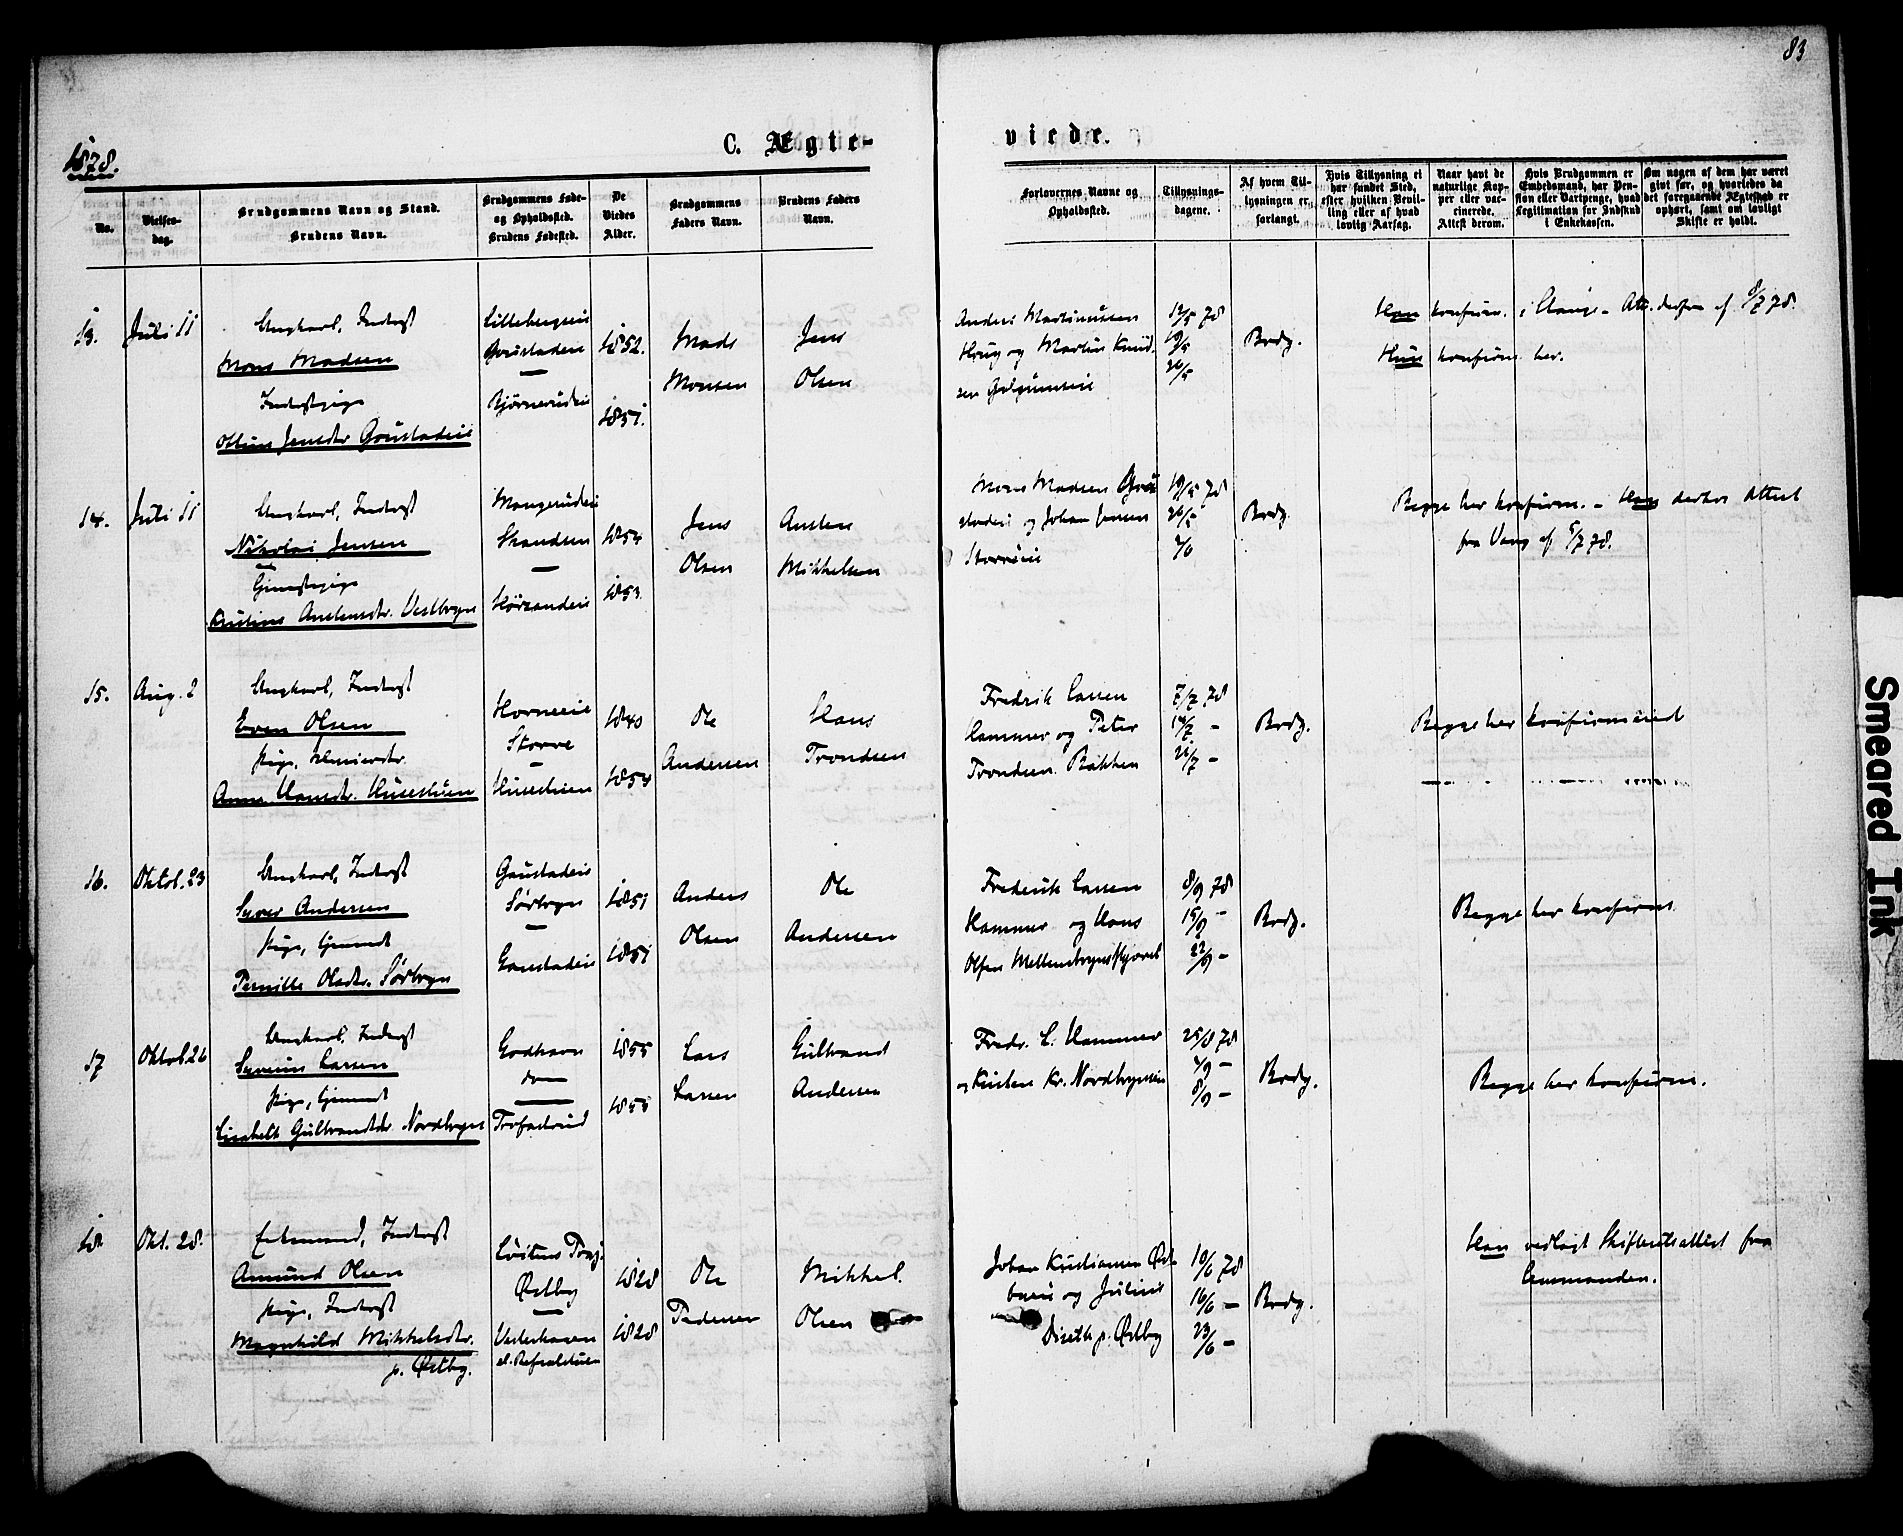 83
1878.
C. Ægte-
viede.
No.
Vielses-
dag.
Brudgommens Navn og Stand.
Brudens Navn.
Brudgommens Føde-
og Opholdssted.
Brudens Fødested.
De
Viedes
Alder.
Brudgommens
Faders Navn.
Brudens Faders
Navn.
Forlovernes Navne og
Opholdssted.
Tillysnings-
dagene.
Af hvem Til-
lysningen er
forlangt.
Hvis Tillysning ei
har fundet Sted,
efter hvilken Bevil-
ling eller af hvad
lovlig Aarsag.
Naar havt de
naturlige Kop-
per eller vac-
cinerede.
Attest derom.
Hvis Brudgommen er
Embedsmand, har Pen-
sion eller Vartpenge, hvad
Legitimation for Indskud
i Enkekassen.
Om nogen af dem har været
gift før, og hvorledes da
det foregaaende Ægteskab er
ophørt, samt om lovligt
Skifte er holdt.
13.
Juli 11
Ungkarl, Inderst
Mons Madsen
Inderstpige
Oline Jensdtr
1852.
1851.
Mads
Monsen
Jens
Olsen
Anders Martinussen
og Martin Knud-
sen
12/5 78
19/5
26/5
Brdg.
Han konfirm. i - Att. derfra af 8/7 78.
Hun konfirm. her.
14.
Juli 11
Ungkarl, Inderst
Nikolai Jensen
Kristine Andersdtr. Vestbyn
1854
1853
Jens
Olsen
Mikkelsen
Mons Madsen
og Johan Jensen
19/5 78
26/5
2/6
Brdg.
Begge her konfirm. - Han derhos Attest
fra Vang af 5/7 78.
15.
Aug. 2
Ungkarl, Inderst
Even Olsen
Anne Hansdtr. Husestuen
Horneeie
Storve
Husestuen
1840
1854
Ole
Andersen
Hans
Trondsen
Fredrik Larsen
Hammer og Peter
Trondsen Bakken
7/7 78
14/7 -
21/7 -
Brdg.
Begge her konfirmeret
16.
Oktob. 23
Ungkarl, Inderst
Syver Andersen
Pernille Olsdtr. Sørbyn
Gaustadeie
Sørbyn
Gaustadeie
1851
1851
Anders
Olsen
Ole
Andersen
Frederik Larsen
Hammer og Hans
Olsen
8/9 78
15/9 -
22/9 -
Brdg.
Begge her konfirm.
17
Oktob. 26
Ungkarl, Inderst
Syverin Larsen
Lisabeth Gulbrandsdtr. Nordbyn
Godhavn
1855
1855
Lars
Larsen
Gulbrand
Andersen
Fredr. L. Hammer
og Kristian Kr. Nordbyeneie
25/8 78
1/9 -
8/9 -
Brdg.
Begge her konfirm.
18.
Okt. 28.
Enkemand, Inderst
Amund Olsen
Pige, Inderst
Magnhild Mikkelsdtr.
p. Østby.
Løitens Præj.
Østby
1828
1828
Ole
Pedersen
Mikkel
Olsen
Johan Kristiansen Øst-
byeie og Julius
Diseth p. Østby
10/6 78
16/6 -
23/6 -
Brdg.
Han vedlagt Skifteretsattest fra
Lensmanden.
Smeared Ink